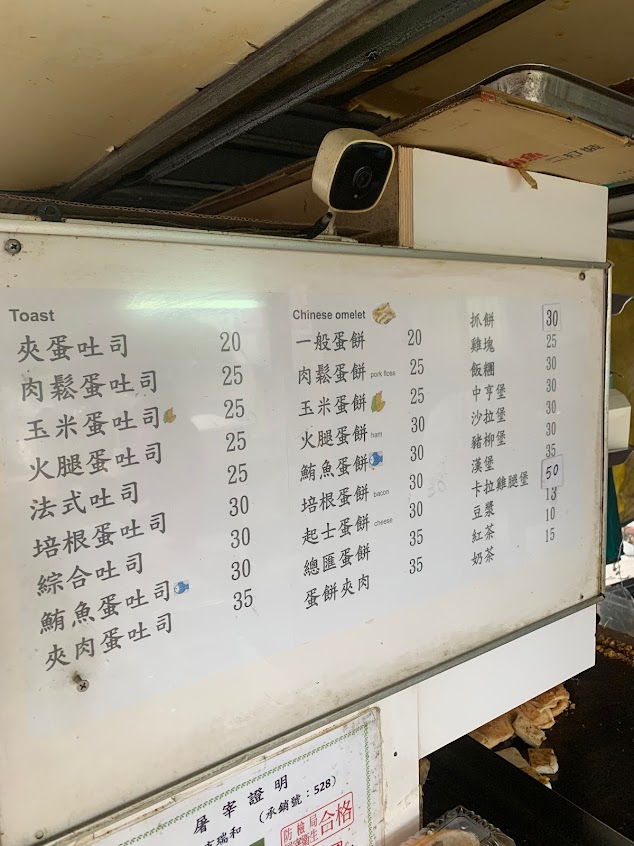 Toast
夾蛋吐司 20
肉鬆蛋吐司 25
玉米蛋吐司 25
火腿蛋吐司 25
法式吐司 25
培根蛋吐司 30
綜合吐司 30
鮪魚蛋吐司 30
夾肉蛋吐司 35
Chinese omelet
一般蛋餅 20
肉鬆蛋餅 pork floss 25
玉米蛋餅 25
火腿蛋餅 ham 30
鮪魚蛋餅 30
培根蛋餅 bacon 30
起士蛋餅 cheese 30
總匯蛋餅 35
蛋餅夾肉 35
抓餅 30
雞塊 25
飯糰 30
中亨堡 30
沙拉堡 30
豬柳堡 30
漢堡 35
卡拉雞腿堡 50
豆漿 13
紅茶 10
奶茶 15
屠宰證明
(承銷號：528)
瑞和
防檢局
合格